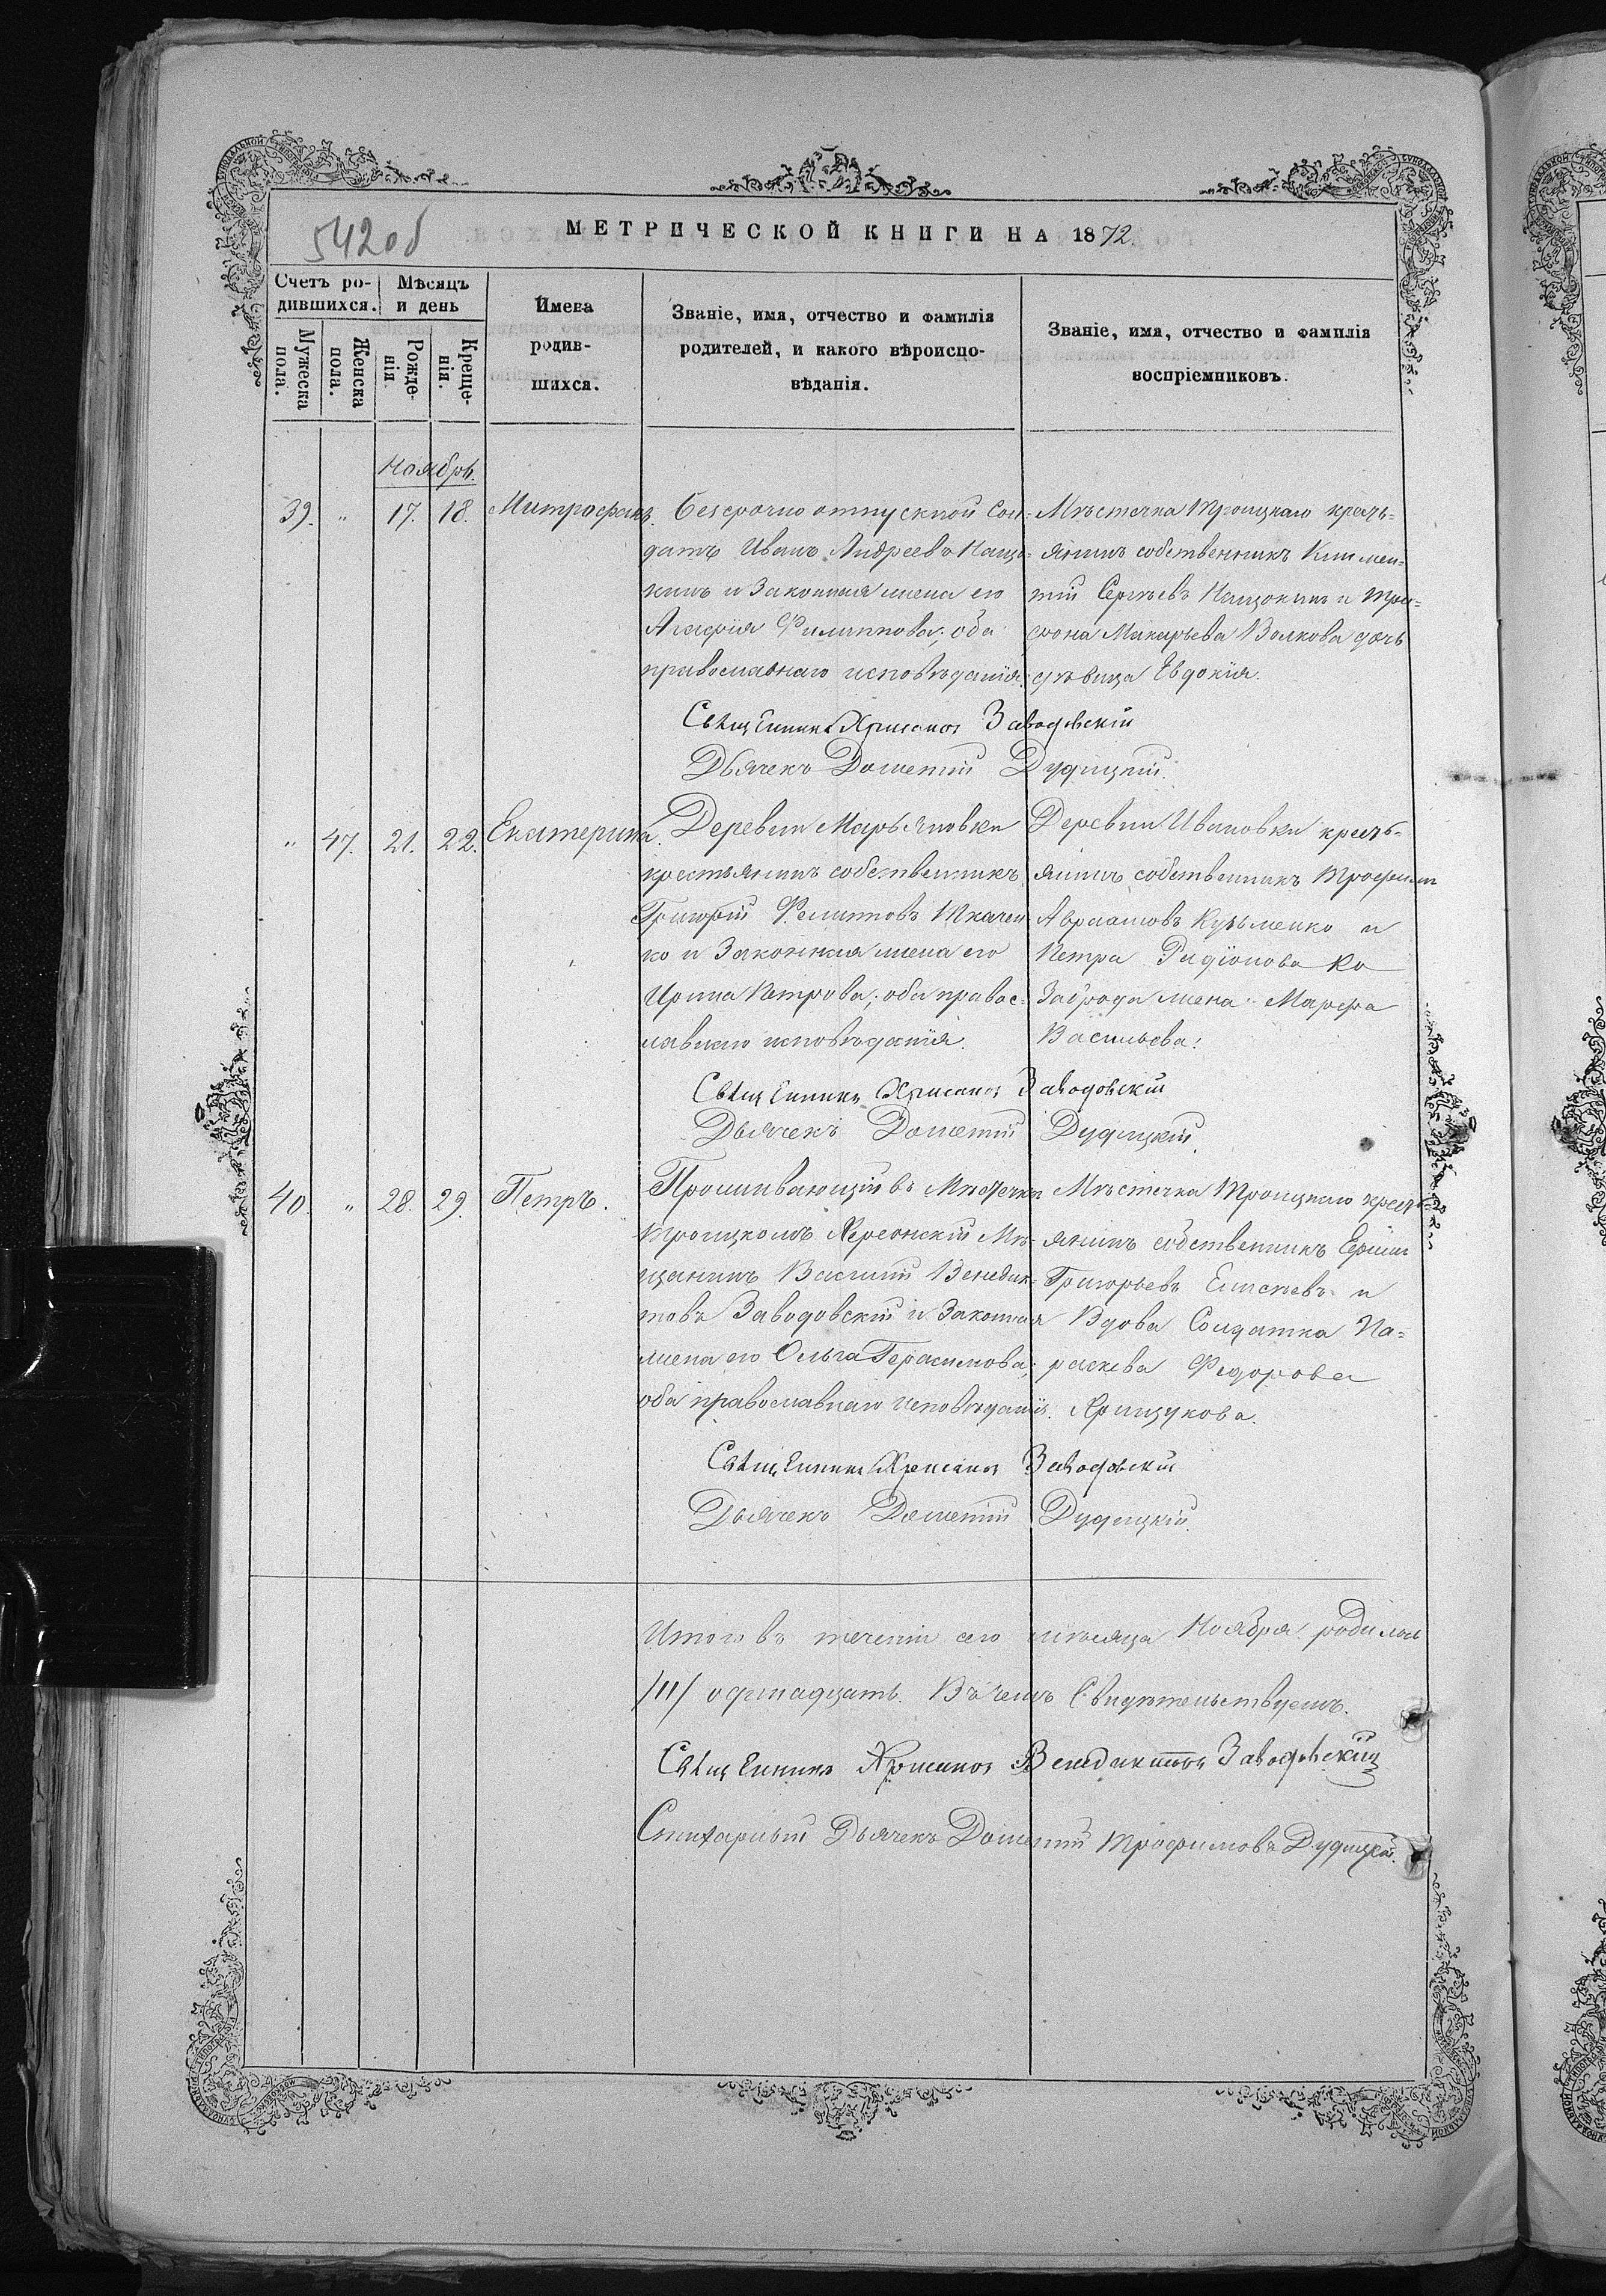 542об
МЕТРИЧЕСКОЙ КНИГИ НА 1872.
Счетъ ро-
дившихся.
Мѣсяцъ
и день
Имена
родив-
шихся.
Званіе, имя, отчество и фамилія
родителей, и какого вѣроиспо-
вѣданія.
Званіе, имя, отчество и фамилія
воспріемниковъ.
Мужеска
пола.
Женска
пола.
Рожде-
нія
Креще-
нія.
Ноябрь.
39. " 17. 18. Митрофанъ.
Безсрочно отпускной Сол-
датъ Иванъ Андреевъ Нащо-
кинъ и Законная жена его
Агафія Филиппова; оба
православнаго исповѣданія.
Мѣстечка Троицкаго кресть-
янинъ собственникъ Климен-
тій Сергѣевъ Нащокинъ и Три-
фона Макарьева Волкова дочь
дѣвица Евдокія.
Священникъ Хрисанѳ Заводовскій
Дьячекъ Дометій Дудицкій.
" 47. 21. 22. Екатерина.
Деревни Марьяновки
крестьянинъ собственникъ
Григорій Филиповъ Ткачен-
ко и Законная жена его
Ирина Петрова; оба правос-
лавнаго исповѣданія.
Деревни Ивановки кресть-
янинъ собственникъ Трофим
Авраамовъ Кузьменко и
Петра Радіонова Ко
Заброда жена Марфа
Васильева.
Священникъ Хрисанѳ Заводовскій
Дьячекъ Дометій Дудицкій.
40. " 28. 29. Петръ.
Проживающій въ Мѣстечкѣ
Троицкомъ Херсонскій Мѣ-
щанинъ Василій Венедик-
товъ Заводовскій и Законная
жена его Ольга Герасимова;
оба православнаго исповѣданія.
Мѣстечка Троицкаго кресть-
янинъ собственникъ Ефим
Григорьевъ Елисѣевъ и
Вдова Солдатка Па-
раскева Федорова
Хрищукова.
Священникъ Хрисанѳ Заводовскій
Дьячекъ Дометій Дудицкій.
Итого въ теченіи сего мѣсяца Ноября родилось
/11/ одинадцать. Въ чемъ Свидѣтельствуемъ.
Священникъ Хрисанѳ Венедиктовъ Заводовскій
Стихарный Дьячекъ Дометій Трофимовъ Дудицкій.